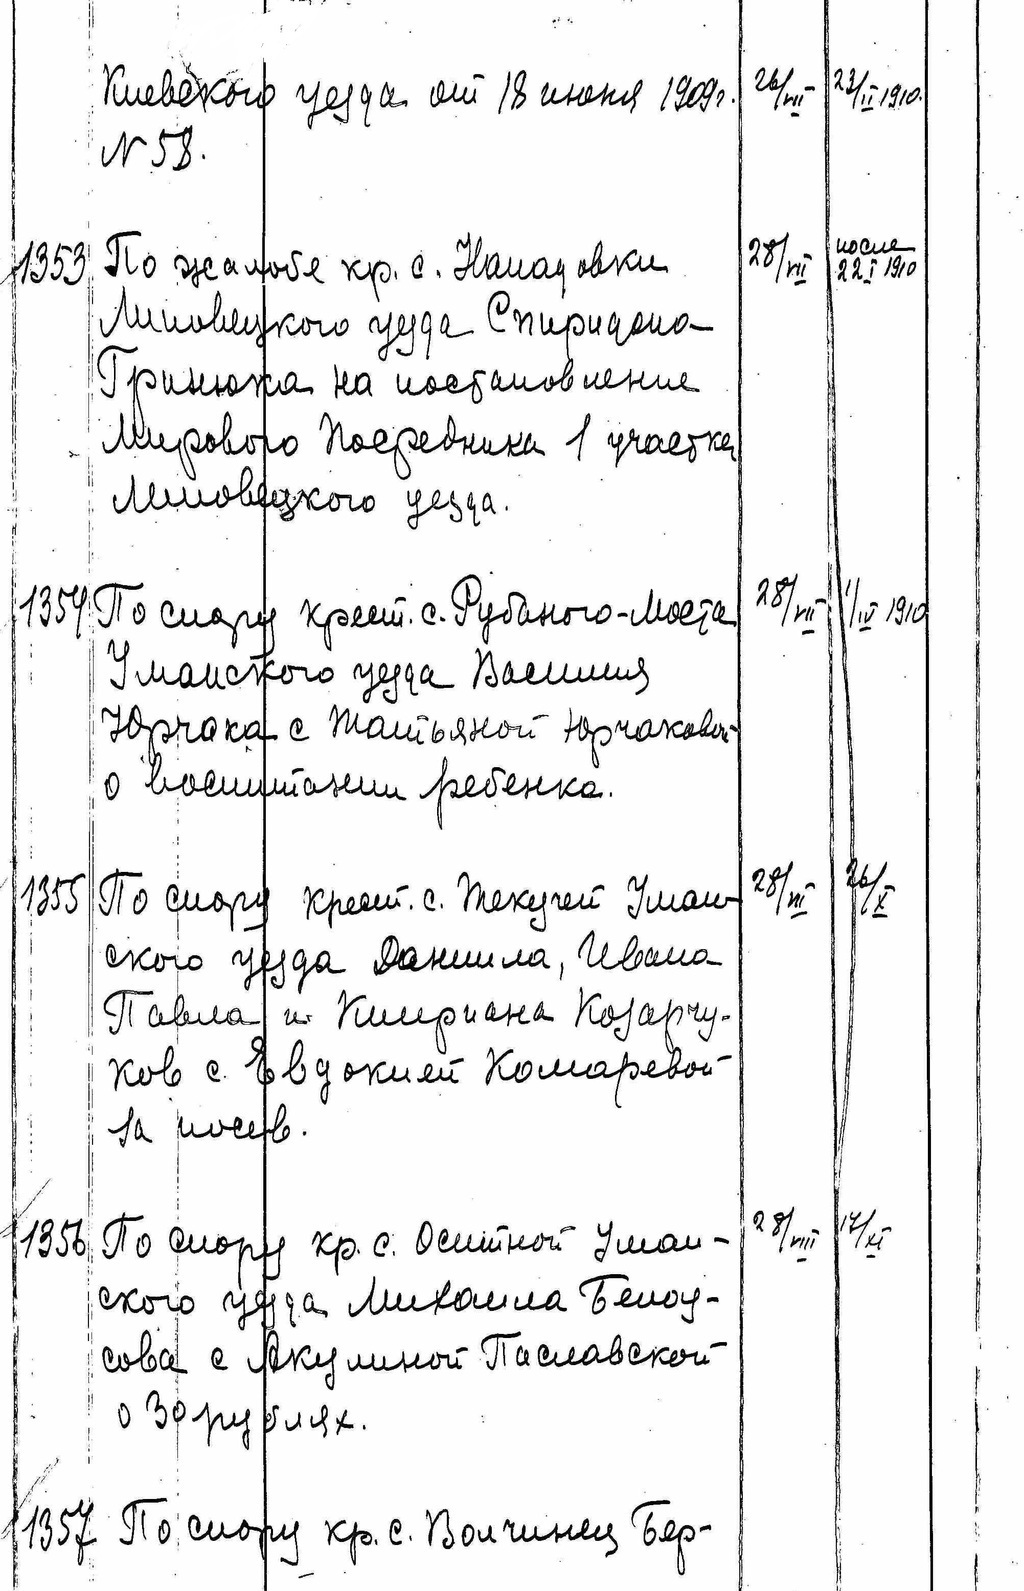 Киевского уезда от 18 июня 1909г. 26/VII 23/II 1910.
N 58.
1353 По жалобе кр. с. Нападовки 28/VII после 22 I 1910
Липовецкого уезда Спиридона
Гринюка на постановление
Мирового Посредника 1 участка
Липовецкого уезда.
1354 По спору крест. с. Рубаного-Моста 28/VII 1/IV 1910
Уманского уезда Василия
Юрчака с Татьяной Юрчаковой
о воспитании ребенка.
1355 По спору крест. с. Текучей Уман- 28/VII 26/X
ского уезда Даниила, Ивана
Павла и Киприана Козарчу-
ков с Евдокией Комаревой
за посев.
1356 По спору кр. с. Оситной Уман- 28/VIII 17/XI
ского уезда Михаила Белоу-
сова с Акулиной Паславской
о 30 рублях.
1357 По спору кр. с. Волчинец Бер-